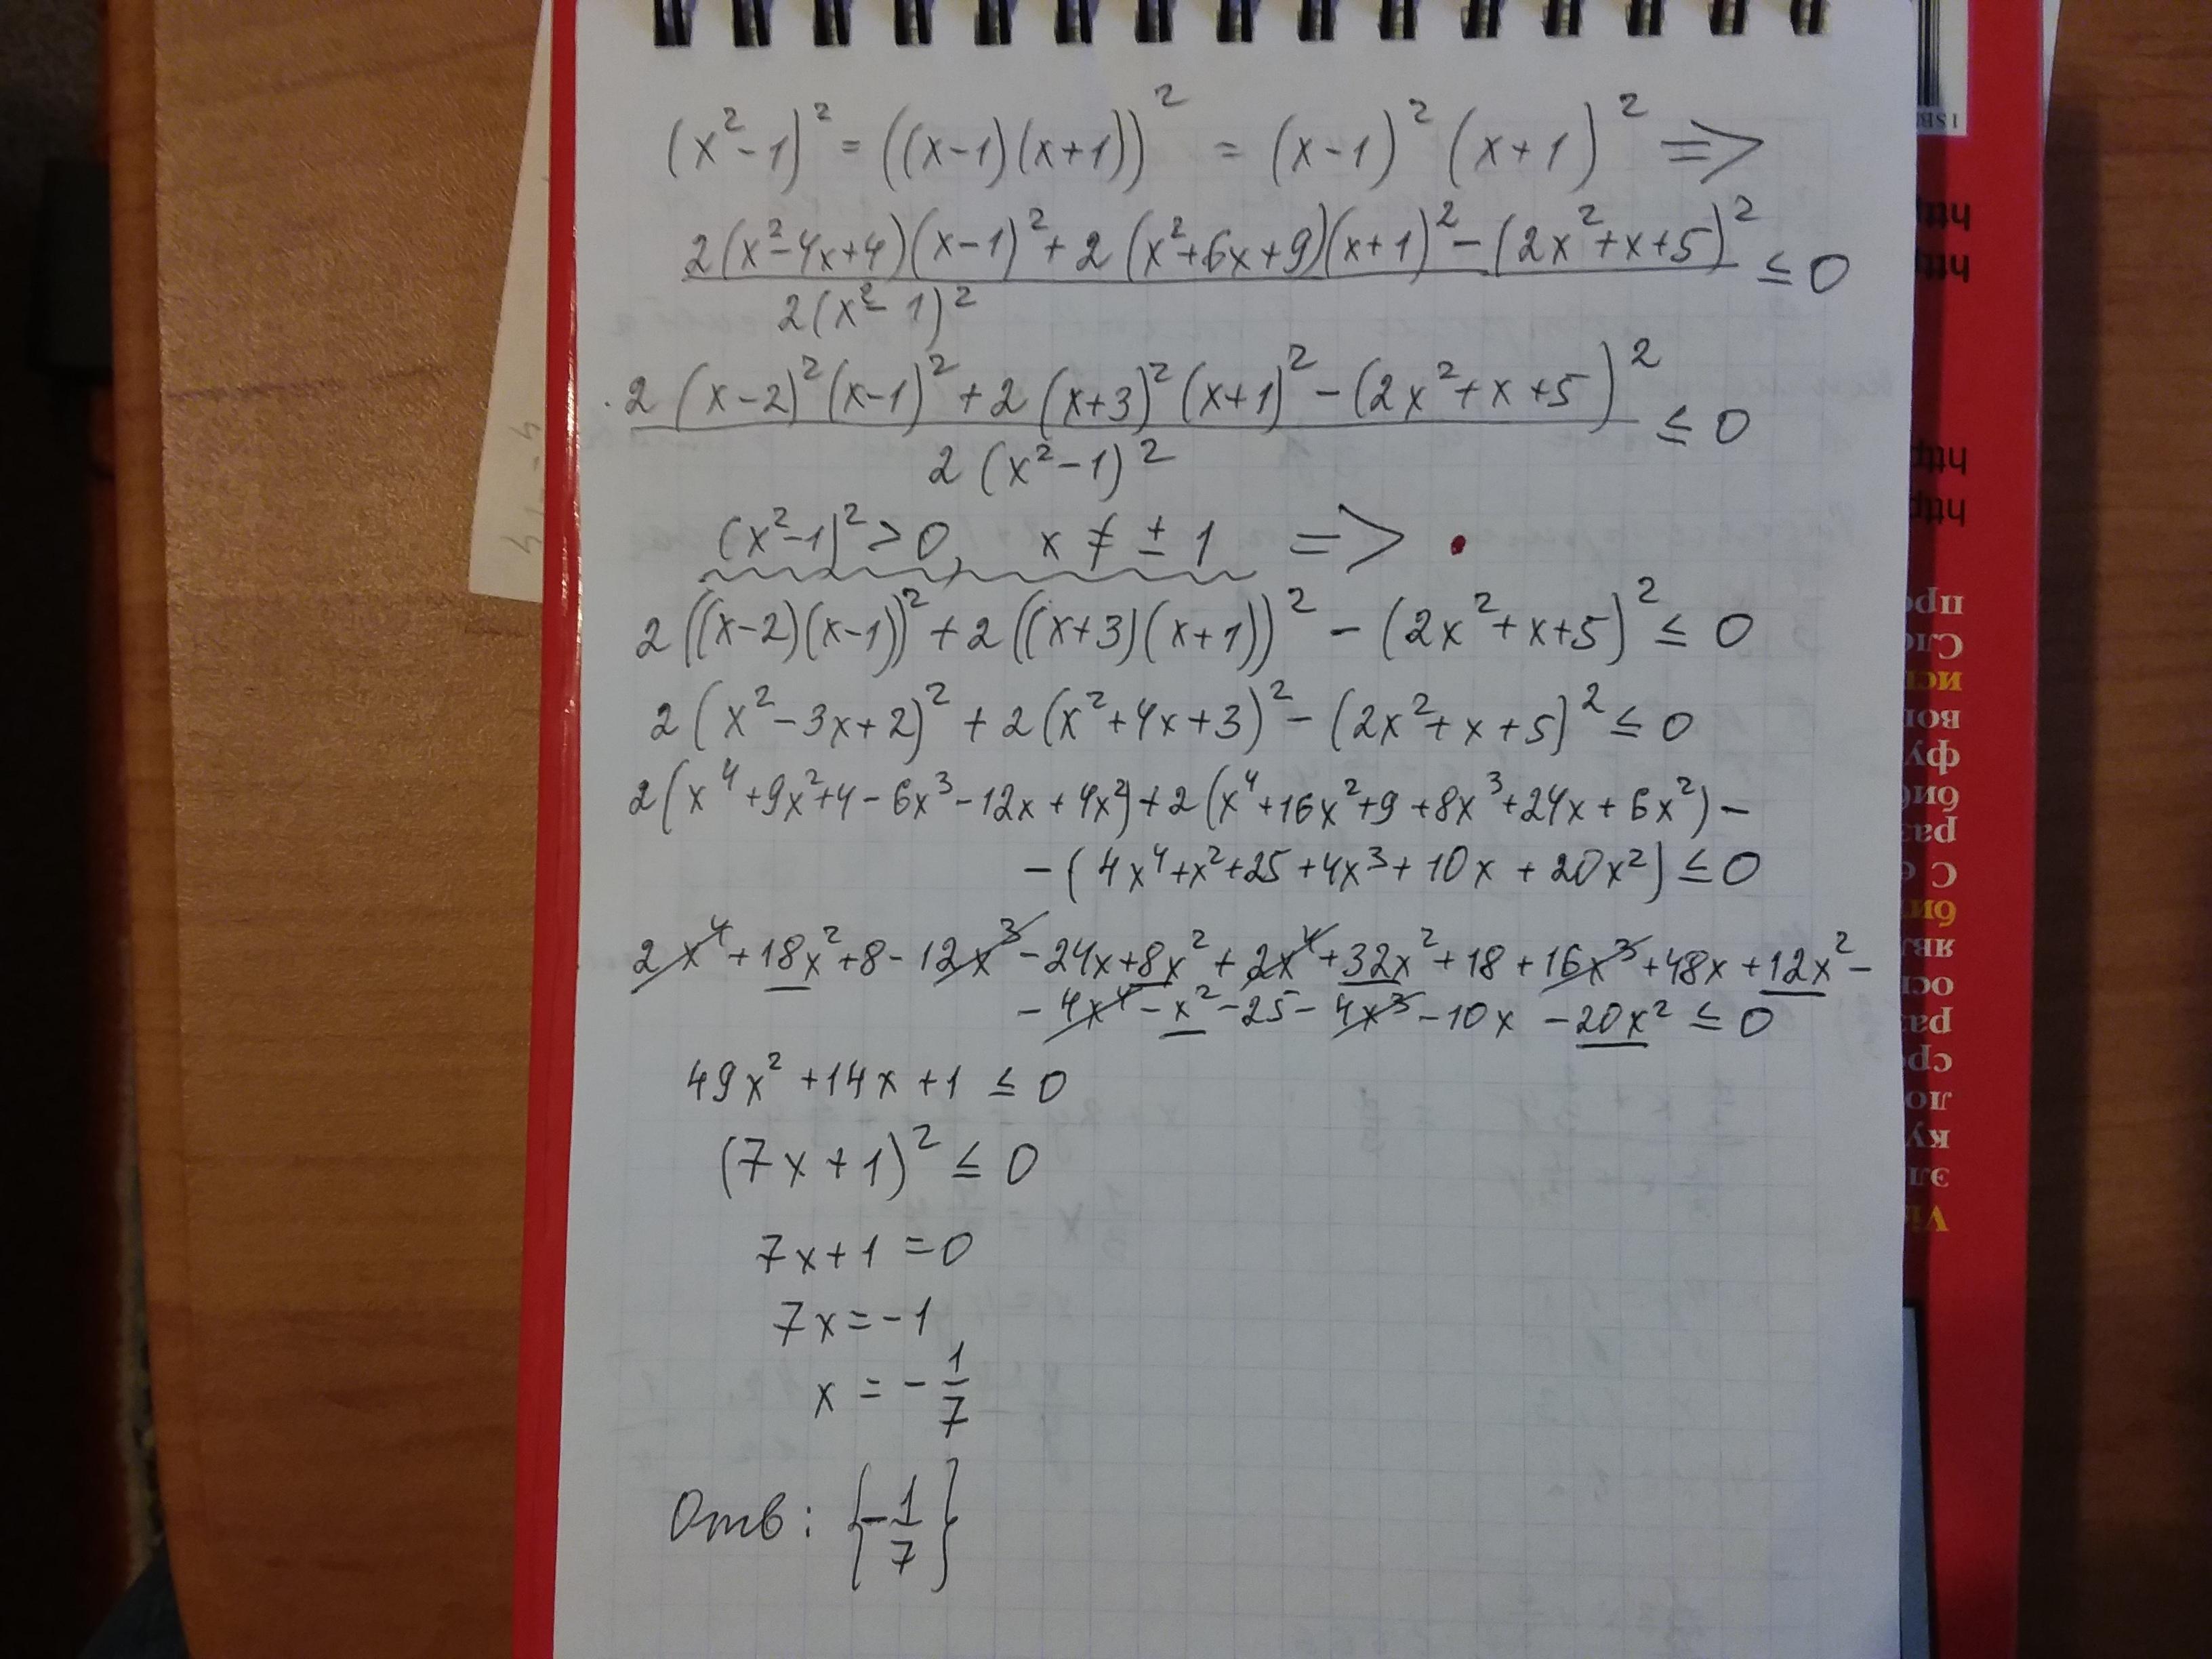 (x²-1)² = ((x-1)(x+1))² = (x-1)²(x+1)² =>
2(x²-4x+4)(x-1)²+2(x²+6x+9)(x+1)²-(2x²+x+5)² ≤ 0
2(x²-1)²
2(x-2)²(x-1)²+2(x+3)²(x+1)²-(2x²+x+5)² ≤ 0
2(x²-1)²
(x²-1)²>0, x ≠ ±1 =>
2((x-2)(x-1))²+2((x+3)(x+1))²-(2x²+x+5)² ≤ 0
2(x²-3x+2)²+2(x²+4x+3)²-(2x²+x+5)² ≤ 0
2(x⁴+9x²+4-6x³-12x+4x²)+2(x⁴+16x²+9+8x³+24x+6x²)-
-(4x⁴+x²+25+4x³+10x+20x²) ≤ 0
2x⁴+18x²+8-12x³-24x+8x²+2x⁴+32x²+18+16x³+48x+12x²-
-4x⁴-x²-25-4x³-10x-20x² ≤ 0
49x²+14x+1 ≤ 0
(7x+1)² ≤ 0
7x+1=0
7x=-1
x=-1/7
Отв: {-1/7}
ISB
http
http
http
http